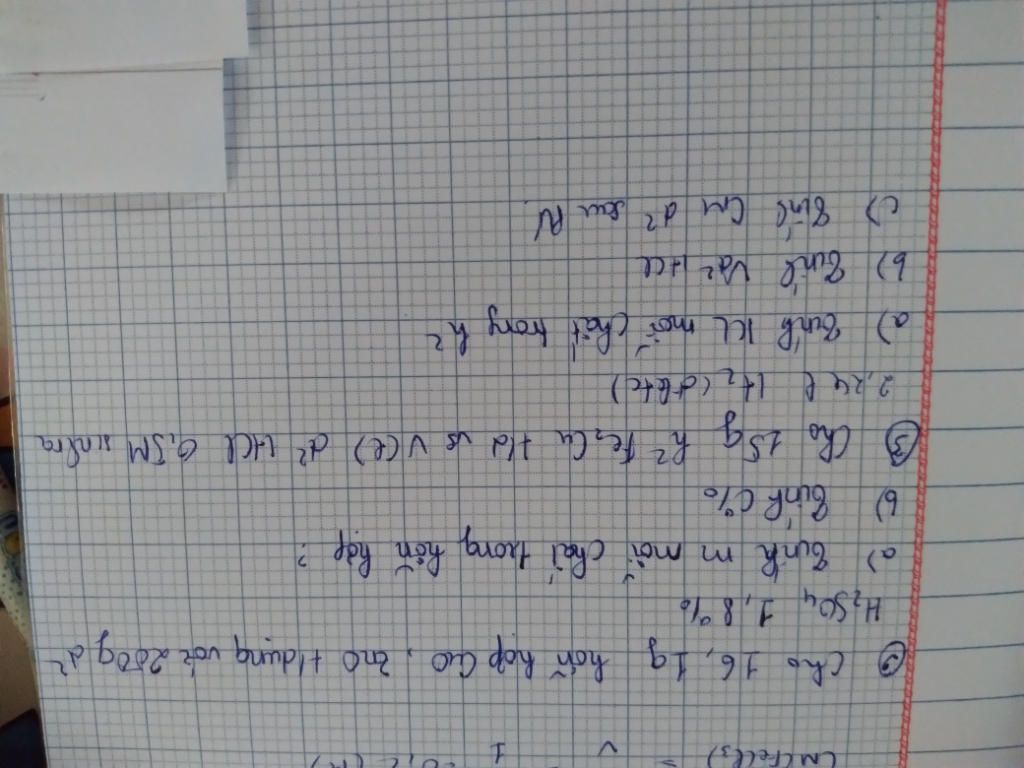 CM(FeCl3) = V 1
② Cho 16,1g hỗn hợp CuO, ZnO + dụng với 250g d²
H2SO4 1,8%
a) Tính m mỗi chất trong hỗn hợp?
b) Tính C%
③ Cho 15g h² Fe, Cu + td vs V(l) d² HCl 0,5M sinh ra
2,24 l H2 (đktc)
a) Tính KL mỗi chất trong h²
b) Tính Vd² HCl
c) Tính CM d² sau PƯ